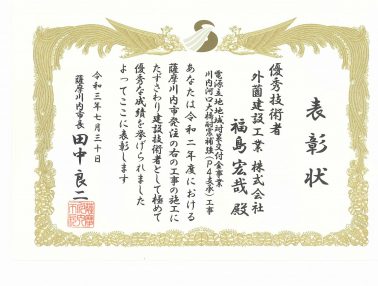 表彰状
優秀技術者
外薗建設工業 株式会社
福島 宏哉 殿
電源立地地域対策交付金事業
川内河口大橋耐震補強(P4支承)工事
あなたは令和二年度における
薩摩川内市発注の右の工事の施工に
たずさわり建設技術者として極めて
優秀な成績を挙げられました
よってここに表彰します
令和三年七月三十日
薩摩川内市長 田中良二